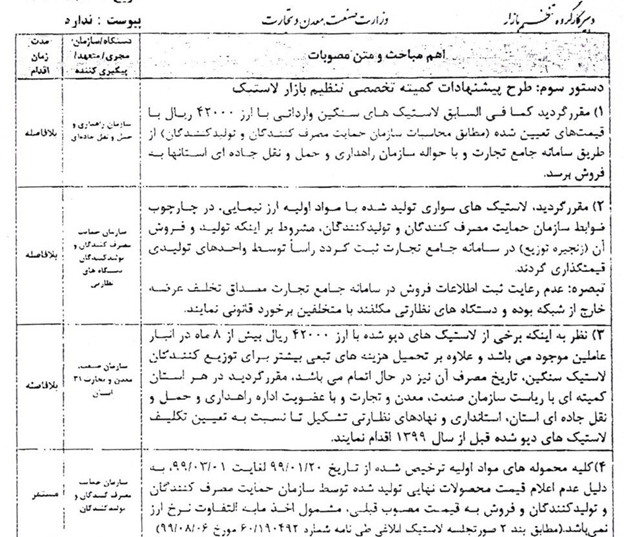 دبیر کارگروه تنظیم بازار
وزارت صنعت، معدن و تجارت
پیوست : ندارد
اهم مباحث و متن مصوبات
دستگاه/سازمان
مجری/متعهد/
پیگیری کننده
مدت
زمان
اقدام
دستور سوم: طرح پیشنهادات کمیته تخصصی تنظیم بازار لاستیک
۱) مقرر گردید کما فی السابق لاستیک های سنگین وارداتی با ارز ۴۲۰۰۰ ریال با
قیمت‌های تعیین شده (مطابق محاسبات سازمان حمایت مصرف کنندگان و تولیدکنندگان) از
طریق سامانه جامع تجارت و با حواله سازمان راهداری و حمل و نقل جاده ای استانها به
فروش برسد.
سازمان راهداری و
حمل و نقل جاده‌ای
بلافاصله
۲) مقرر گردید، لاستیک های سواری تولید شده با مواد اولیه ارز نیمایی، در چارچوب
ضوابط سازمان حمایت مصرف کنندگان و تولیدکنندگان، مشروط بر اینکه تولید و فروش
آن (زنجیره توزیع) در سامانه جامع تجارت ثبت گردد رأساً توسط واحدهای تولیدی
قیمتگذاری گردند.
تبصره: عدم رعایت ثبت اطلاعات فروش در سامانه جامع تجارت مصداق تخلف عرضه
خارج از شبکه بوده و دستگاه های نظارتی مکلفند با متخلفین برخورد قانونی نمایند.
سازمان حمایت
مصرف کنندگان و
تولیدکنندگان
دستگاه های
نظارتی
بلافاصله
۳) نظر به اینکه برخی از لاستیک های دپو شده با ارز ۴۲۰۰۰ ریال بیش از ۸ ماه در انبار
عاملین موجود می باشد و علاوه بر تحمیل هزینه های تبعی بیشتر برای توزیع کنندگان
لاستیک سنگین، تاریخ مصرف آن نیز در حال اتمام می باشد، مقرر گردید در هر استان
کمیته ای با ریاست سازمان صنعت، معدن و تجارت و با عضویت اداره راهداری و حمل و
نقل جاده ای استان، استانداری و نهادهای نظارتی تشکیل تا نسبت به تعیین تکلیف
لاستیک های دپو شده قبل از سال ۱۳۹۹ اقدام نمایند.
سازمان صنعت،
معدن و تجارت ۳۱
استان
بلافاصله
۴) کلیه محموله های مواد اولیه ترخیص شده از تاریخ ۹۹/۰۱/۲۰ لغایت ۹۹/۰۳/۰۱، به
دلیل عدم اعلام قیمت محصولات نهایی تولید شده توسط سازمان حمایت مصرف کنندگان
و تولیدکنندگان و فروش به قیمت مصوب قبلی، مشمول اخذ مابه التفاوت نرخ ارز
نمی‌باشد.(مطابق بند ۲ صورتجلسه لاستیک ابلاغی طی نامه شماره ۶۰/۱۹۰۴۹۲ مورخ ۹۹/۰۸/۰۶)
سازمان حمایت
مصرف کنندگان و
تولیدکنندگان
مستمر